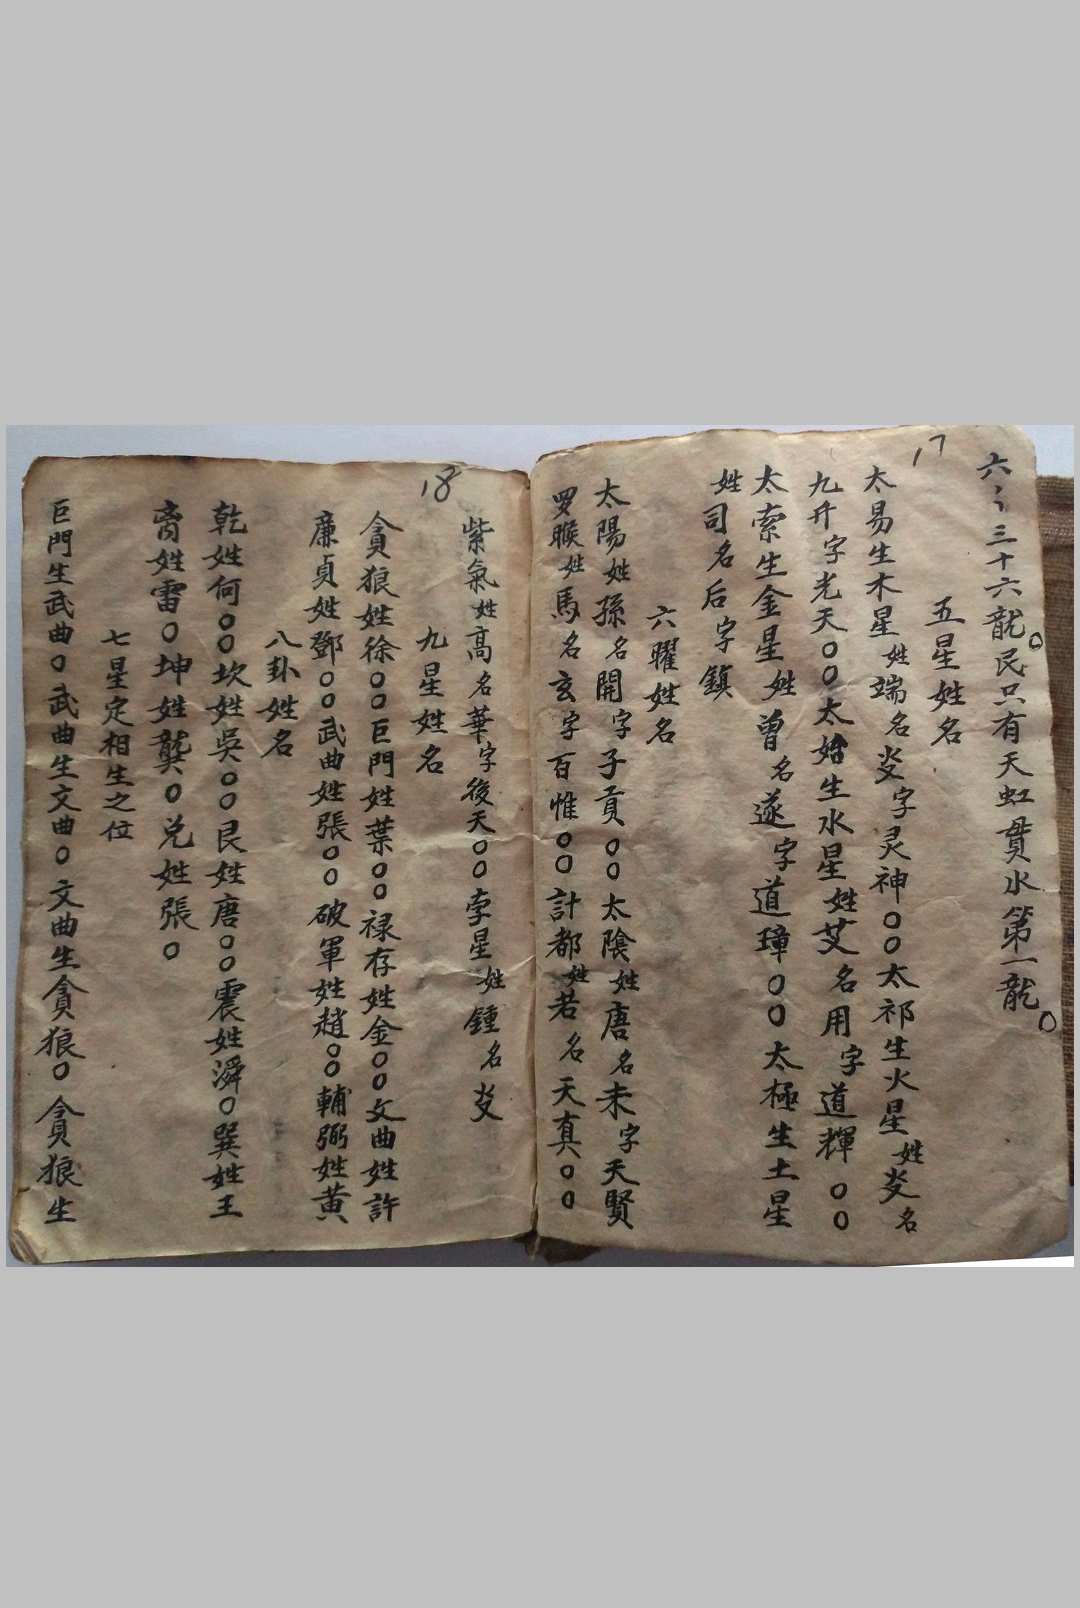 17
六ミ三十六龍民只有天虹貫水第一龍〇
五星姓名
太易生木星姓端名炎字灵神〇〇太祁生火星姓炎名
九升字光天〇〇太始生水星姓艾名用字道輝〇〇
太索生金星姓曾名遂字道璋〇〇太極生土星
姓司名后字鎮
六曜姓名
太陽姓孫名開字子貢〇〇太陰姓唐名未字天賢
罗睺姓馬名玄字百惟〇〇計都姓若名天真〇〇
18
紫氣姓高名華字後天〇〇孛星姓鍾名炎
九星姓名
貪狼姓徐〇〇巨門姓葉〇〇禄存姓金〇〇文曲姓許
廉貞姓鄧〇〇武曲姓張〇〇破軍姓趙〇〇輔弼姓黄
八卦姓名
乾姓何〇〇坎姓吳〇〇艮姓唐〇〇震姓〇巽姓王
离姓雷〇坤姓龔〇兑姓張〇
七星定相生之位
巨門生武曲〇武曲生文曲〇文曲生貪狼〇貪狼生